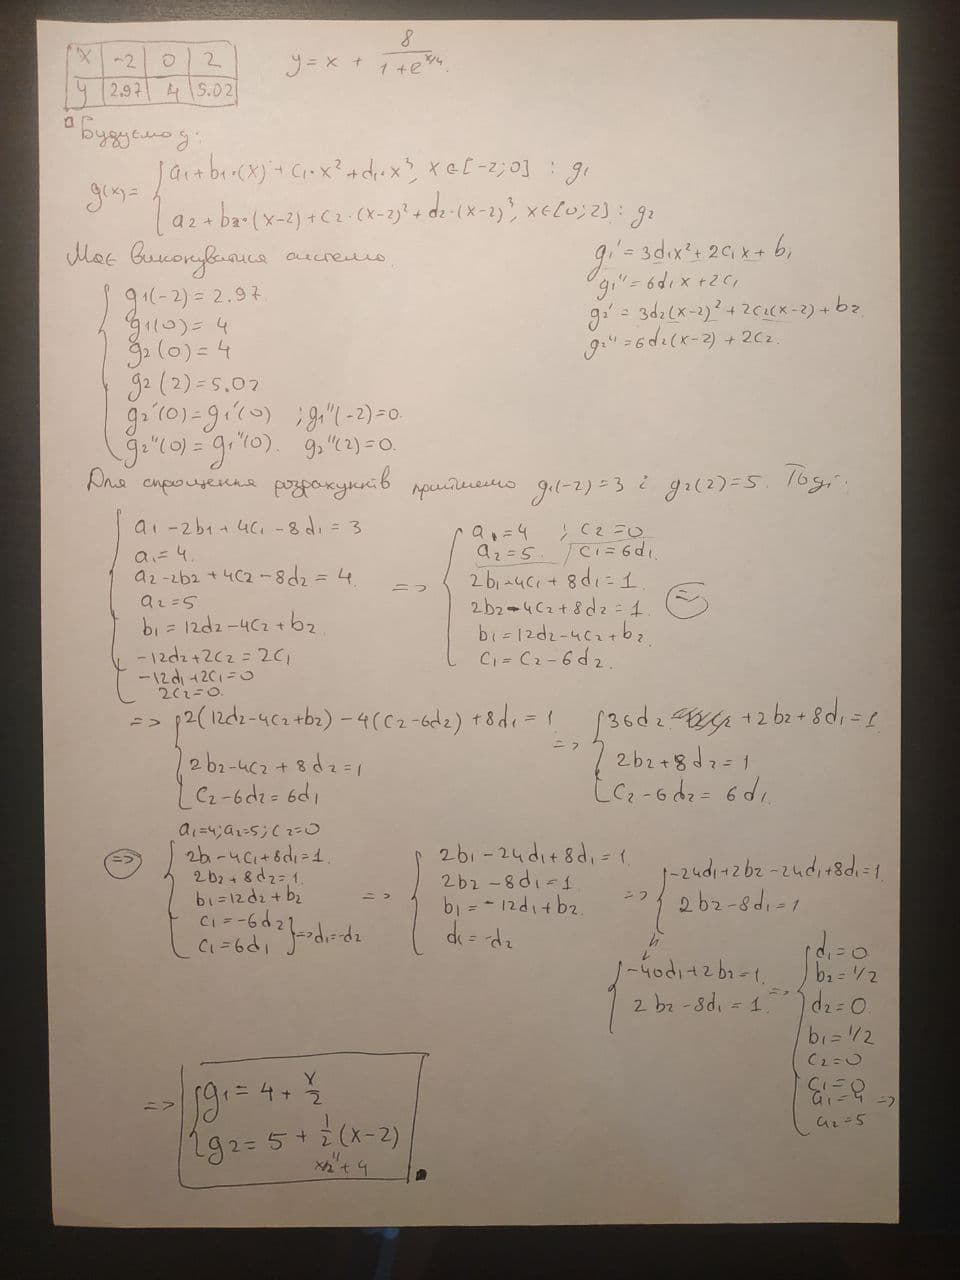 x -2 0 2
y 2.97 4 5.02
y = x + 8/(1+e^{x/4}).
Будуємо g:
g(x) = { a₁+b₁·(x)+c₁·x²+d₁·x³, x∈[-2;0] : g₁
a₂+b₂·(x-2)+c₂·(x-2)²+d₂·(x-2)³, x∈[0;2] : g₂
Має виконуватися система
g₁' = 3d₁x²+2c₁x+b₁
g₁'' = 6d₁x+2c₁
g₂' = 3d₂(x-2)²+2c₂(x-2)+b₂
g₂'' = 6d₂(x-2)+2c₂.
g₁(-2) = 2.97
g₁(0) = 4
g₂(0) = 4
g₂(2) = 5.02
g₂'(0) = g₁'(0) ; g₁''(-2)=0.
g₂''(0) = g₁''(0). g₂''(2)=0.
Для спрощення розрахунків приймемо g₁(-2)=3 і g₂(2)=5. Тоді:
a₁-2b₁+4c₁-8d₁=3
a₁=4.
a₂-2b₂+4c₂-8d₂=4
a₂=5
b₁=12d₂-4c₂+b₂
-12d₂+2c₂=2c₁
-12d₁+2c₁=0
2c₂=0.
=> a₁=4 ; c₂=0
a₂=5. c₁=6d₁.
2b₁-4c₁+8d₁=1.
2b₂-4c₂+8d₂=1.
b₁=12d₂-4c₂+b₂.
c₁=c₂-6d₂.
=>
=> 2(12d₂-4c₂+b₂)-4(c₂-6d₂)+8d₁=1
2b₂-4c₂+8d₂=1
c₂-6d₂=6d₁
=> 36d₂ +2b₂+8d₁=1
2b₂+8d₂=1
c₂-6d₂=6d₁.
a₁=4; a₂=5; c₂=0
=> 2b₁-4c₁+8d₁=1.
2b₂+8d₂=1.
b₁=12d₂+b₂
c₁=-6d₂
c₁=6d₁ } => d₁=-d₂
=> 2b₁-24d₁+8d₁=1.
2b₂-8d₁=1
b₁=-12d₁+b₂.
d₁=-d₂
=> -24d₁+2b₂-24d₁+8d₁=1.
2b₂-8d₁=1
-40d₁+2b₂=1.
2b₂-8d₁=1.
=> d₁=0
b₂=1/2
d₂=0.
b₁=1/2
c₂=0
c₁=0
a₁=4 =>
a₂=5
=> g₁=4+x/2
g₂=5+1/2(x-2)
x/2+4